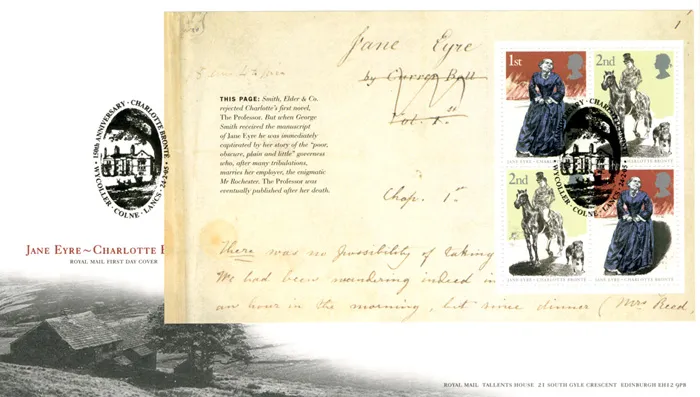 1
Jane Eyre
by Currer Bell
Vol. 1st
THIS PAGE: Smith, Elder & Co.
rejected Charlotte's first novel,
The Professor. But when George
Smith received the manuscript
of Jane Eyre he was immediately
captivated by her story of the "poor,
obscure, plain and little" governess
who, after many tribulations,
marries her employer, the enigmatic
Mr Rochester. The Professor was
eventually published after her death.
Chap. 1st
There was no possibility of taking
We had been wandering indeed in
an hour in the morning, but since dinner (Mrs Reed,
1st
2nd
JANE EYRE · CHARLOTTE BRONTË
2nd
JANE EYRE · CHARLOTTE BRONTË
150th ANNIVERSARY · CHARLOTTE BRONTË
WYCOLLER · COLNE · LANCS · 24·2·05
JANE EYRE~CHARLOTTE B
ROYAL MAIL FIRST DAY COVER
ROYAL MAIL TALLENTS HOUSE 21 SOUTH GYLE CRESCENT EDINBURGH EH12 9PB